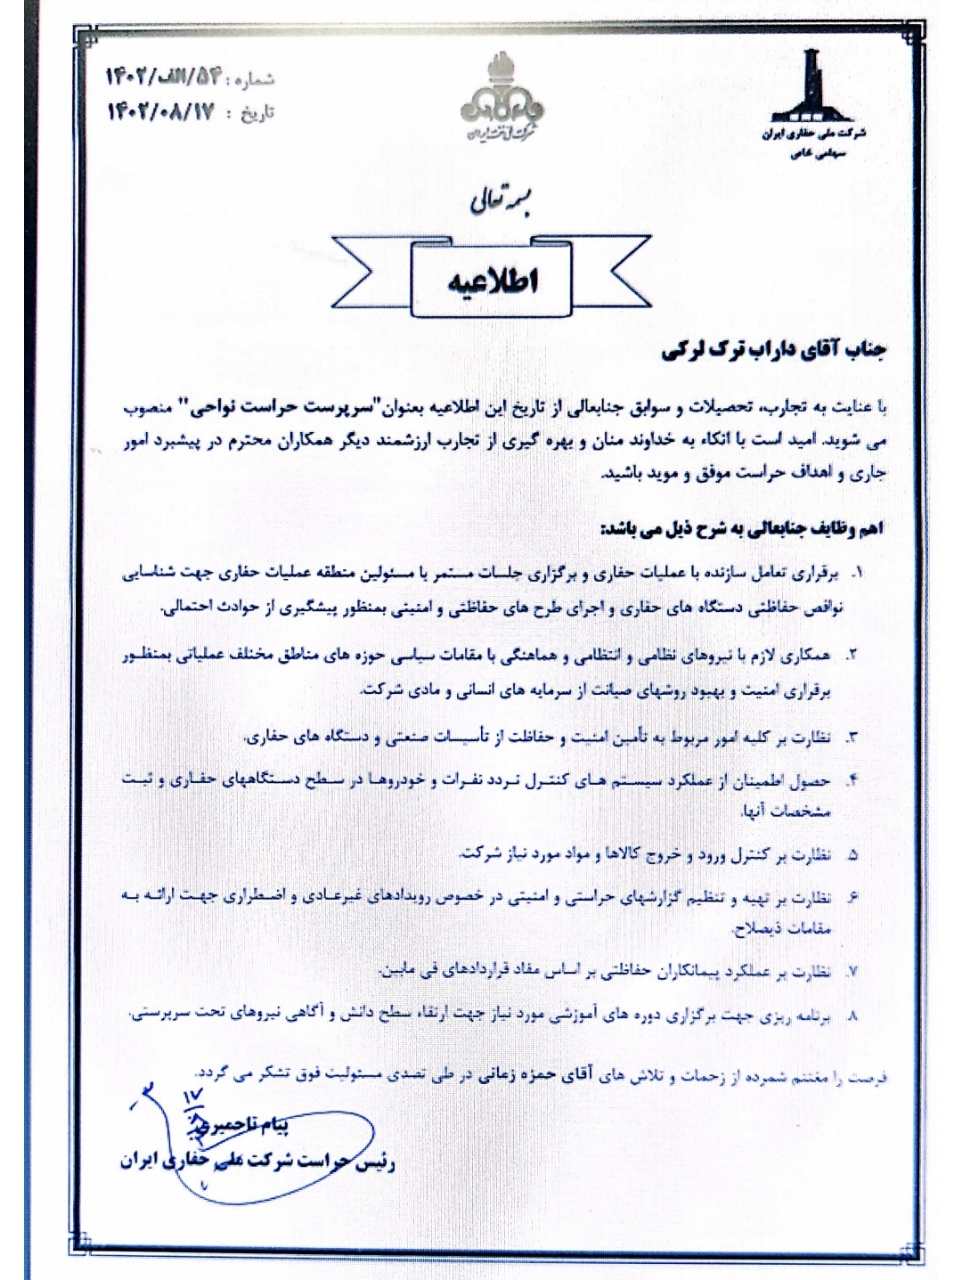 شماره : ۵۴/الف/۱۴۰۲
تاریخ : ۱۴۰۲/۰۸/۱۷
شرکت ملی نفت ایران
شرکت ملی حفاری ایران
سهامی خاص
بسمه تعالی
اطلاعیه
جناب آقای داراب ترک لرکی
با عنایت به تجارب، تحصیلات و سوابق جنابعالی از تاریخ این اطلاعیه بعنوان"سرپرست حراست نواحی" منصوب
می شوید. امید است با اتکاء به خداوند منان و بهره گیری از تجارب ارزشمند دیگر همکاران محترم در پیشبرد امور
جاری و اهداف حراست موفق و موید باشید.
اهم وظایف جنابعالی به شرح ذیل می باشد:
۱. برقراری تعامل سازنده با عملیات حفاری و برگزاری جلسات مستمر با مسئولین منطقه عملیات حفاری جهت شناسایی
نواقص حفاظتی دستگاه های حفاری و اجرای طرح های حفاظتی و امنیتی بمنظور پیشگیری از حوادث احتمالی.
۲. همکاری لازم با نیروهای نظامی و انتظامی و هماهنگی با مقامات سیاسی حوزه های مناطق مختلف عملیاتی بمنظور
برقراری امنیت و بهبود روشهای صیانت از سرمایه های انسانی و مادی شرکت.
۳. نظارت بر کلیه امور مربوط به تأمین امنیت و حفاظت از تأسیسات صنعتی و دستگاه های حفاری.
۴. حصول اطمینان از عملکرد سیستم های کنترل تردد نفرات و خودروها در سطح دستگاههای حفاری و ثبت
مشخصات آنها.
۵. نظارت بر کنترل ورود و خروج کالاها و مواد مورد نیاز شرکت.
۶. نظارت بر تهیه و تنظیم گزارشهای حراستی و امنیتی در خصوص رویدادهای غیرعادی و اضطراری جهت ارائه به
مقامات ذیصلاح.
۷. نظارت بر عملکرد پیمانکاران حفاظتی بر اساس مفاد قراردادهای فی مابین.
۸. برنامه ریزی جهت برگزاری دوره های آموزشی مورد نیاز جهت ارتقاء سطح دانش و آگاهی نیروهای تحت سرپرستی.
فرصت را مغتنم شمرده از زحمات و تلاش های آقای حمزه زمانی در طی تصدی مسئولیت فوق تشکر می گردد.
۱۷
پیام تاجمیری
رئیس حراست شرکت ملی حفاری ایران